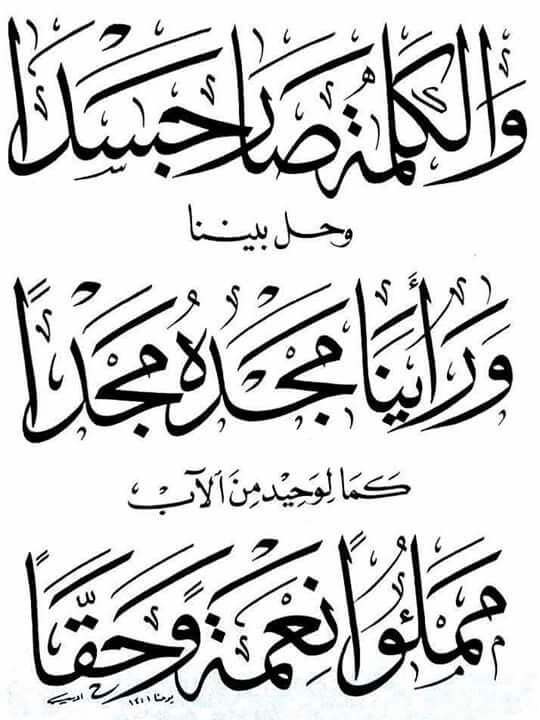 وَالكَلِمَةُ صَارَ جَسَدًا
وحل بيننا
وَرَأَينَا مَجْدَهُ مَجْدًا
كَمَا لِوَحِيْدٍ مِنَ الآبْ
مَملُوءًا نِعْمَةً وَحَقًّا
يوحنا ١:١٤